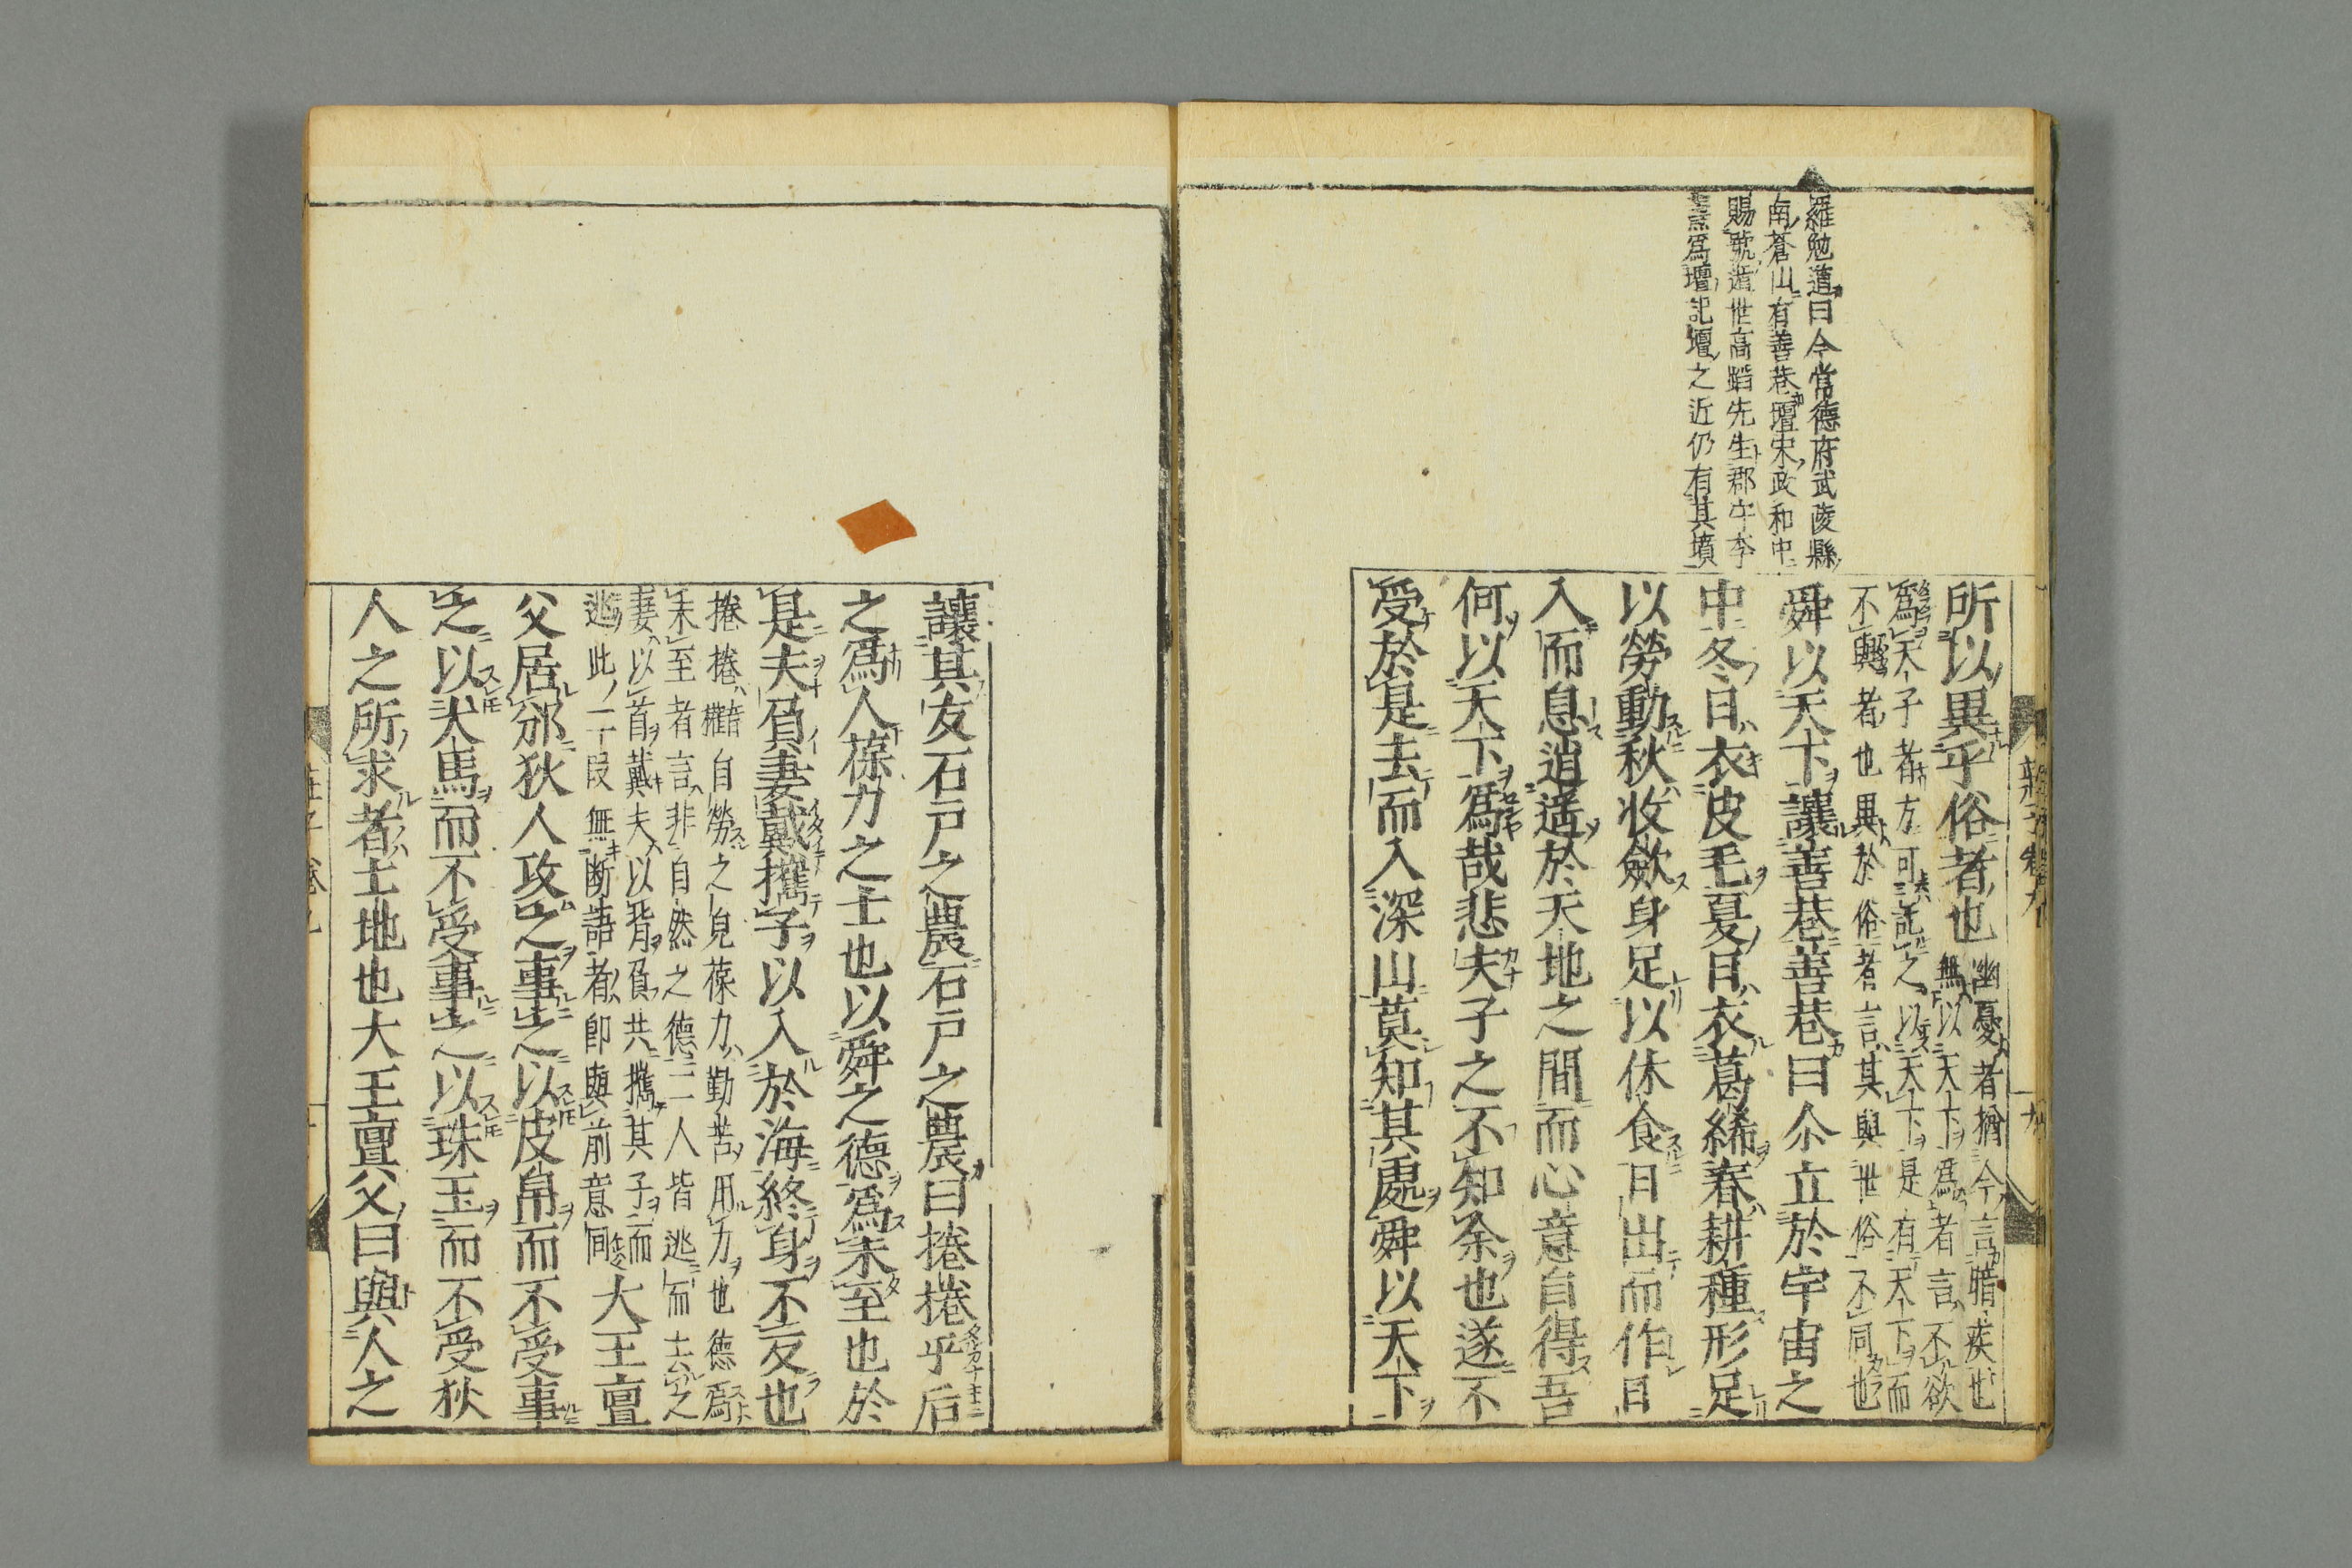 羅勉道曰今常德府武陵縣
南蒼山有善巷壇宋政和中
賜號遁世高蹈先生郡守李
燾爲壇記壇之近仍有其墳
所以異乎俗者也
幽憂者猶今言暗疾也
無以天下爲者言不欲
爲天子者方可託之以天下是有天下而
不與者也異於俗者言其與世俗不同也
舜以天下讓善巷善巷曰余立於宇宙之
中冬日衣皮毛夏日衣葛絺春耕種形足
以勞動秋收斂身足以休食日出而作日
入而息逍遥於天地之間而心意自得吾
何以天下爲哉悲夫子之不知余也遂不
受於是去而入深山莫知其處舜以天下
讓其友石戸之農石戸之農曰捲捲乎后
之爲人葆力之士也以舜之德爲未至也於
是夫負妻戴攜子以入於海終身不反也
捲捲音權自勞之皃葆力勤苦用力也德爲
未至者言非自然之德二人皆逃而去之
妻以首戴夫以背負共攜其子而
逃此一段無断語者即與前意同
大王亶
父居邠狄人攻之事之以皮帛而不受事
之以犬馬而不受事之以珠玉而不受狄
人之所求者土地也大王亶父曰與人之